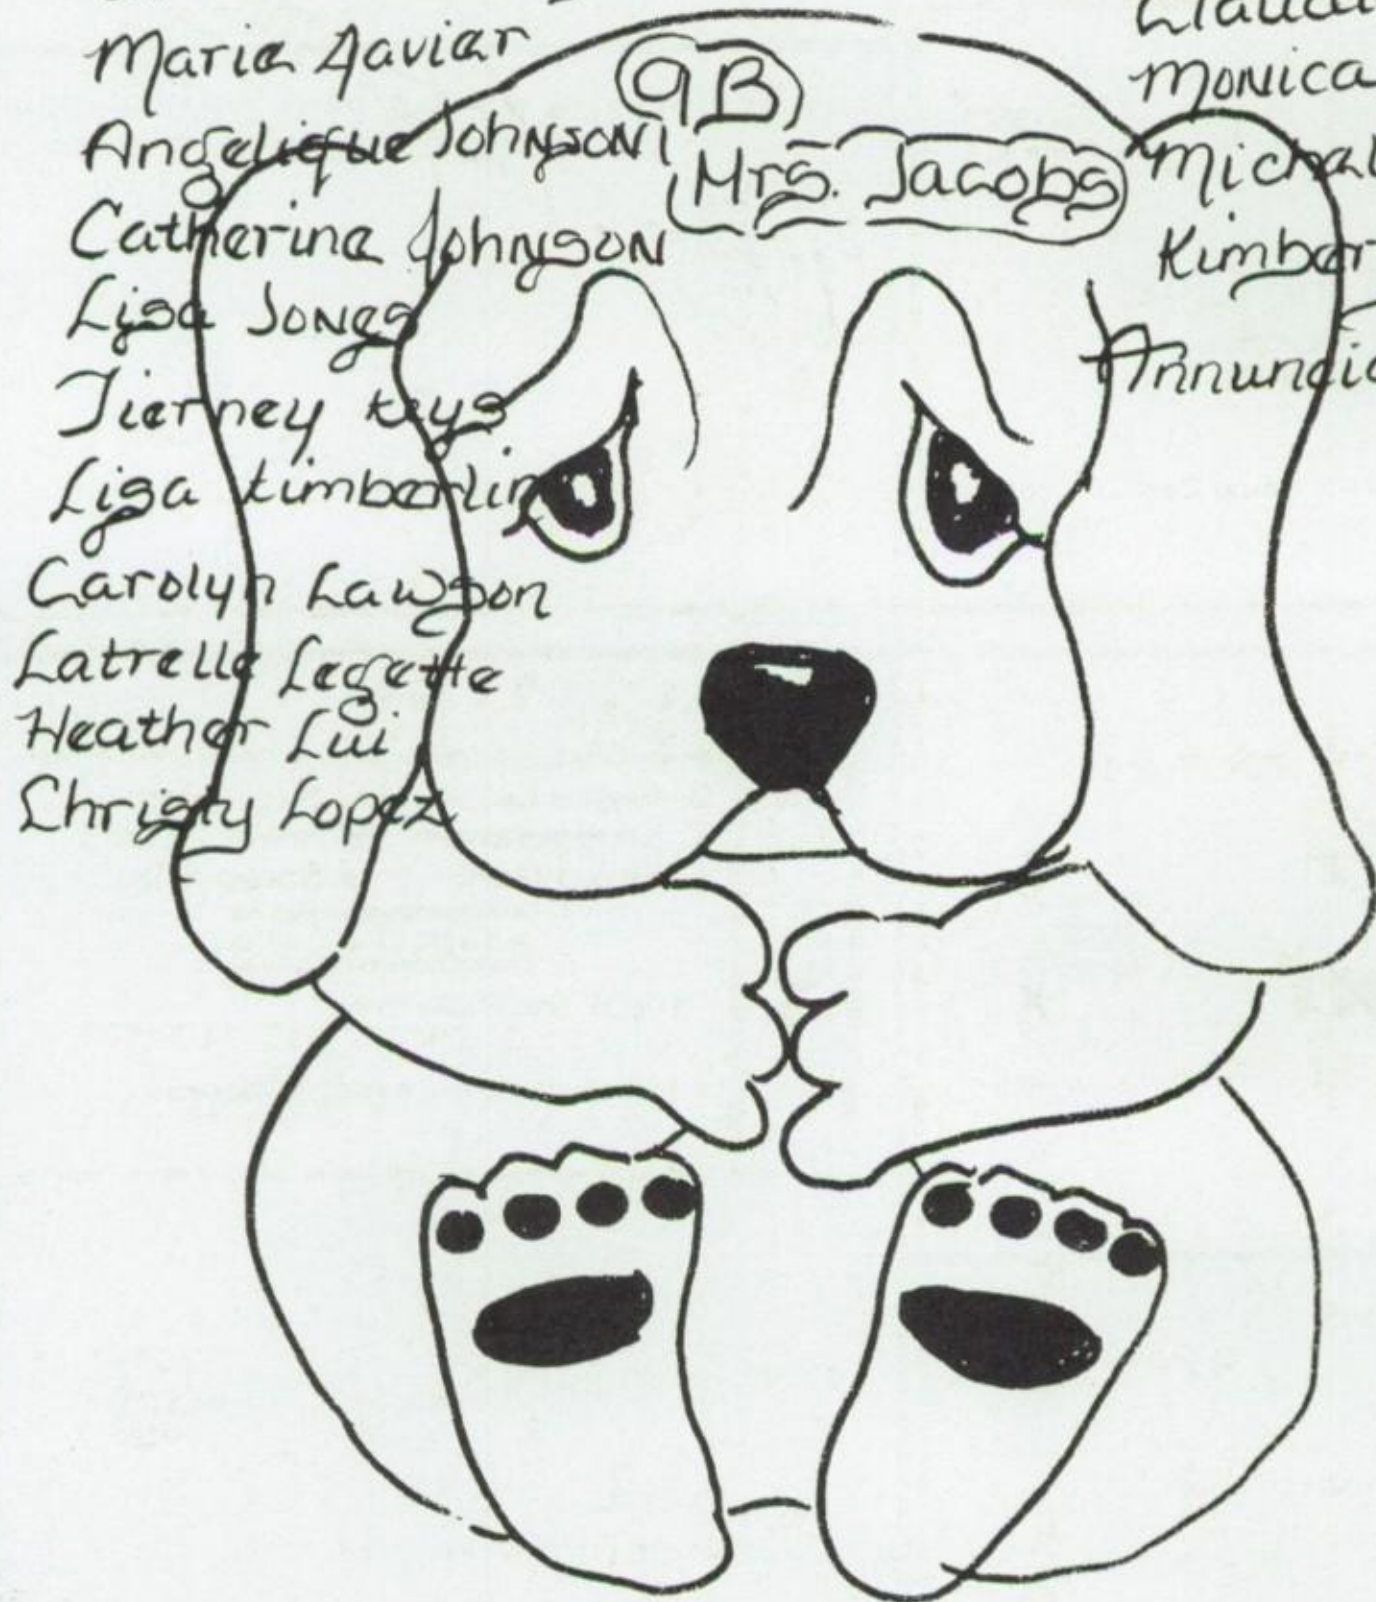 Maria Javier
Angelique Johnson
Catherine Johnson
Lisa Jones
Tierney Keys
Lisa Kimberlin
Carolyn Lawson
Latrelle Legette
Heather Lui
Christy Lopez
9B
Mrs. Jacobs
Monica